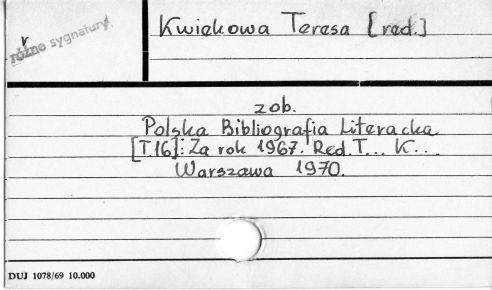 Kwiekowa Teresa [red.]
v
różne sygnatury
zob.
Polska Bibliografia Literacka
[T.16]: Za rok 1967. Red. T... K...
Warszawa 1970.
DUJ 1078/69 10.000